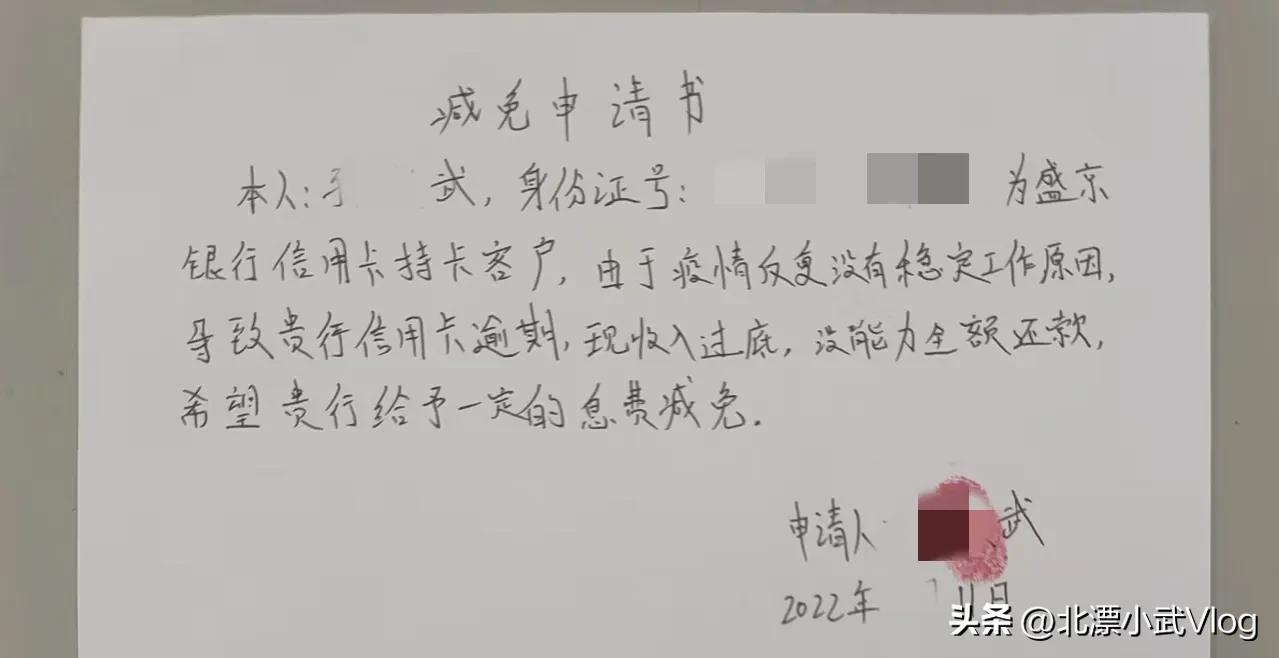 减免申请书
本人: 武,身份证号: 为盛京
银行信用卡持卡客户,由于疫情反复没有稳定工作原因,
导致贵行信用卡逾期,现收入过底,没能力全额还款,
希望贵行给予一定的息费减免.
申请人 武
2022年 11日
头条 @北漂小武Vlog